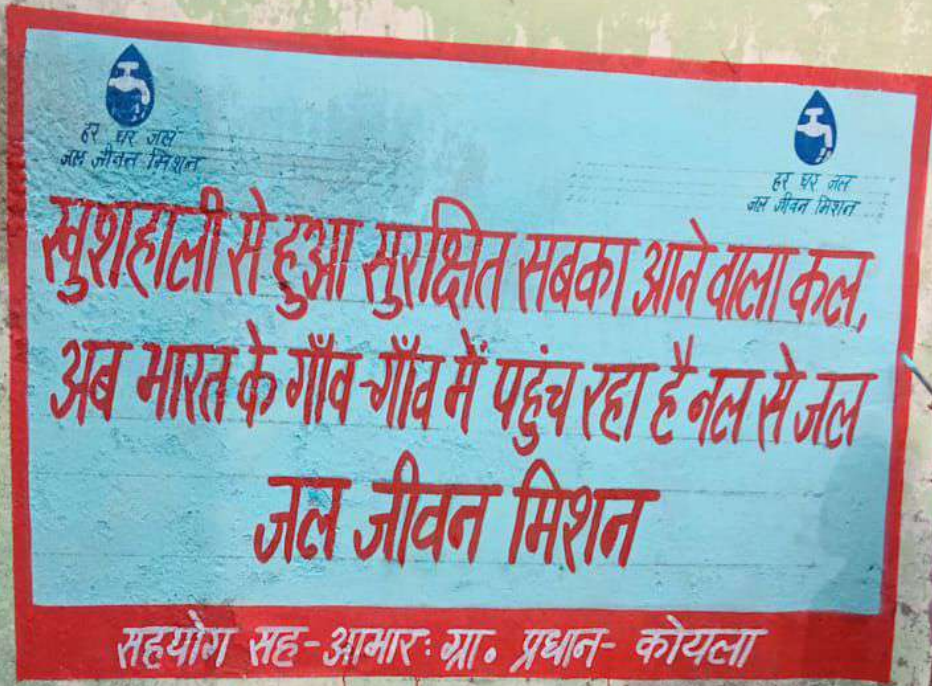 हर घर जल
जल जीवन मिशन
हर घर जल
जल जीवन मिशन
खुशहाली से हुआ सुरक्षित सबका आने वाला कल,
अब भारत के गाँव-गाँव में पहुंच रहा है नल से जल
जल जीवन मिशन
सहयोग सह-आभारः ग्रा० प्रधान- कोयला